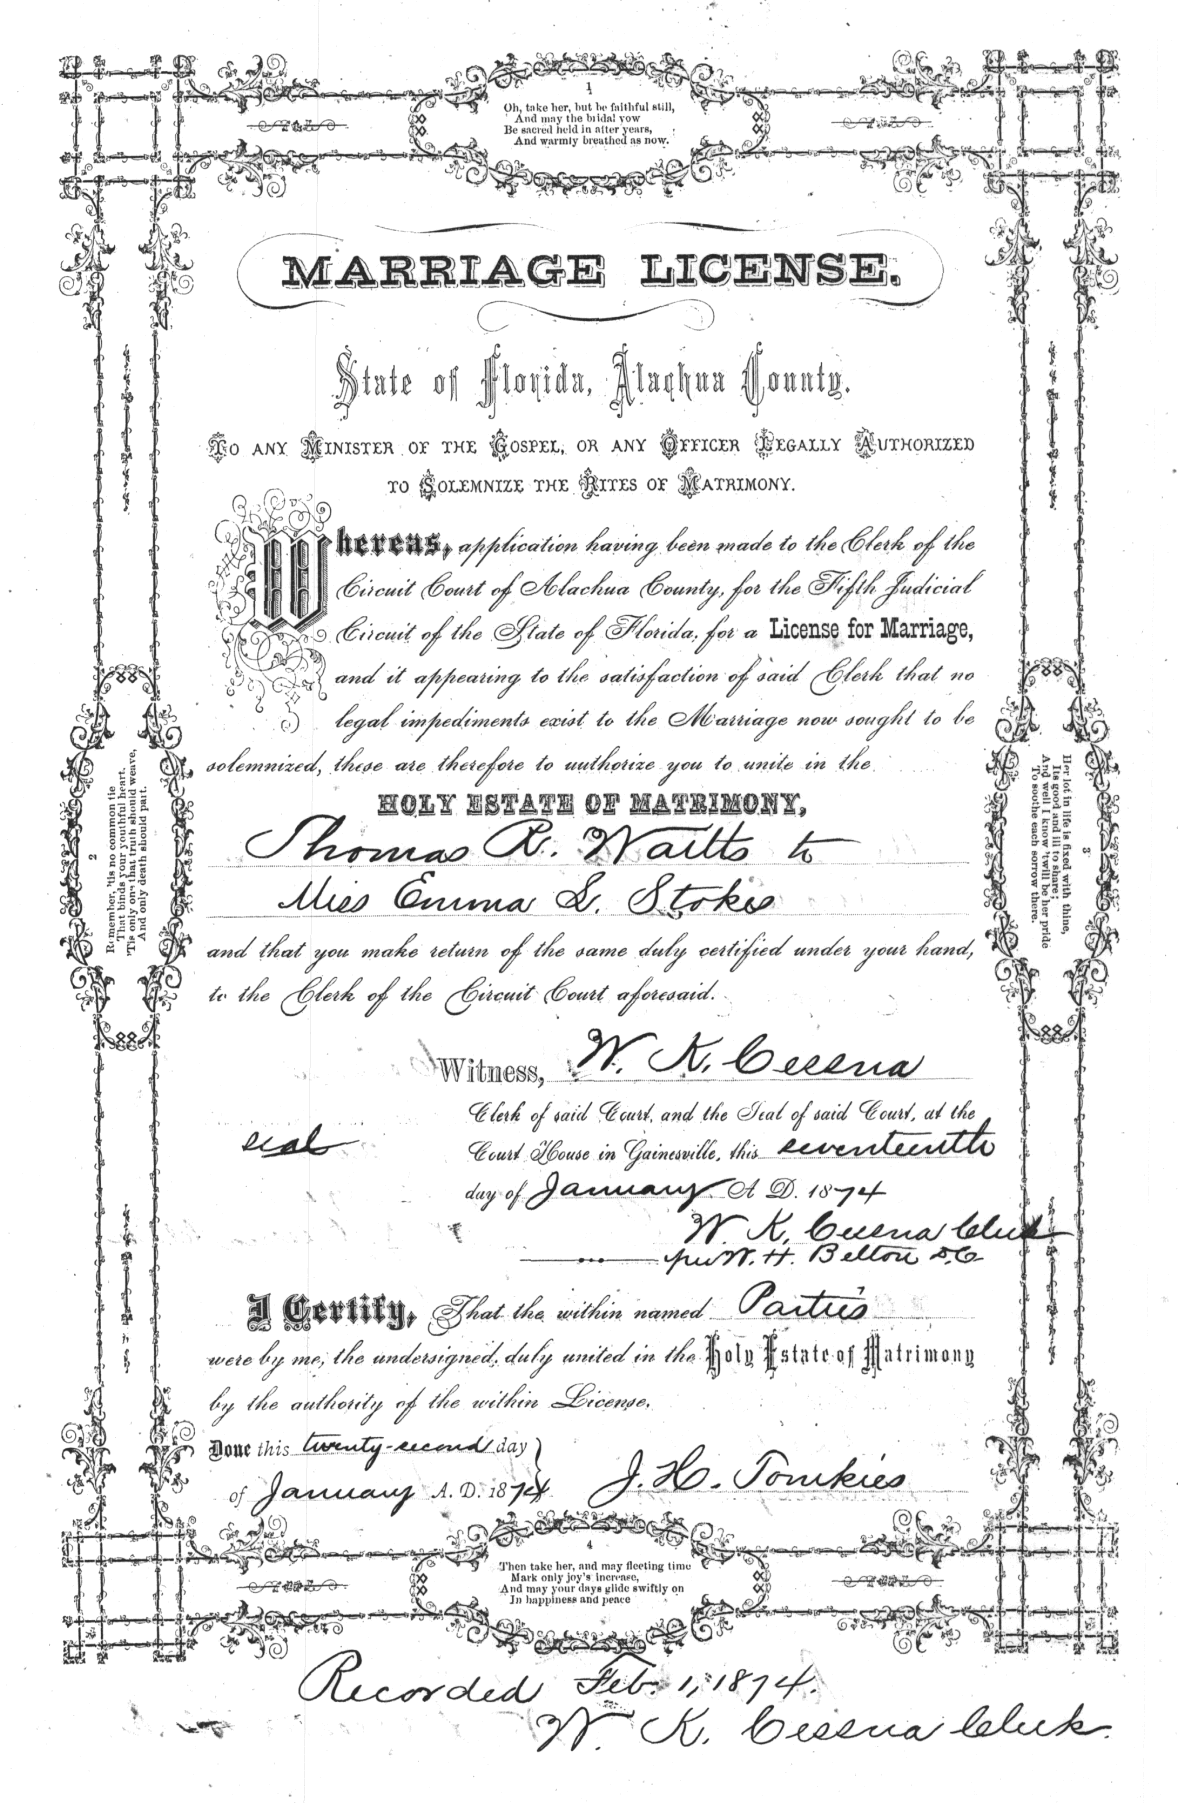 1
Oh, take her, but be faithful still,
And may the bridal vow
Be sacred held in after years,
And warmly breathed as now.
MARRIAGE LICENSE.
State of Florida, Alachua County.
TO ANY MINISTER OF THE GOSPEL, OR ANY OFFICER LEGALLY AUTHORIZED
TO SOLEMNIZE THE RITES OF MATRIMONY.
Whereas, application having been made to the Clerk of the
Circuit Court of Alachua County, for the Fifth Judicial
Circuit of the State of Florida, for a License for Marriage,
and it appearing to the satisfaction of said Clerk that no
legal impediments exist to the Marriage now sought to be
solemnized, these are therefore to authorize you to unite in the
HOLY ESTATE OF MATRIMONY,
Thomas R. Waitts to
Miss Emma L. Stokes
and that you make return of the same duly certified under your hand,
to the Clerk of the Circuit Court aforesaid.
2
Remember, 'tis no common tie
That binds your youthful heart.
'Tis only one that truth should weave,
And only death should part.
3
Her lot in life is fixed with thine,
Its good and ill to share;
And well I know 'twill be her pride
To soothe each sorrow there.
Witness, W. K. Cessna
Clerk of said Court, and the Seal of said Court, at the
seal
Court House in Gainesville, this seventeenth
day of January A. D. 1874
W. K. Cessna Clerk
per W. H. Belton D.C.
I Certify, That the within named Parties
were by me, the undersigned, duly united in the Holy Estate of Matrimony
by the authority of the within License.
Done this twenty-second day
of January A. D. 1874 J. H. Tomkies
4
Then take her, and may fleeting time
Mark only joy's increase,
And may your days glide swiftly on
In happiness and peace
Recorded Feb. 1, 1874.
W. K. Cessna Clerk.